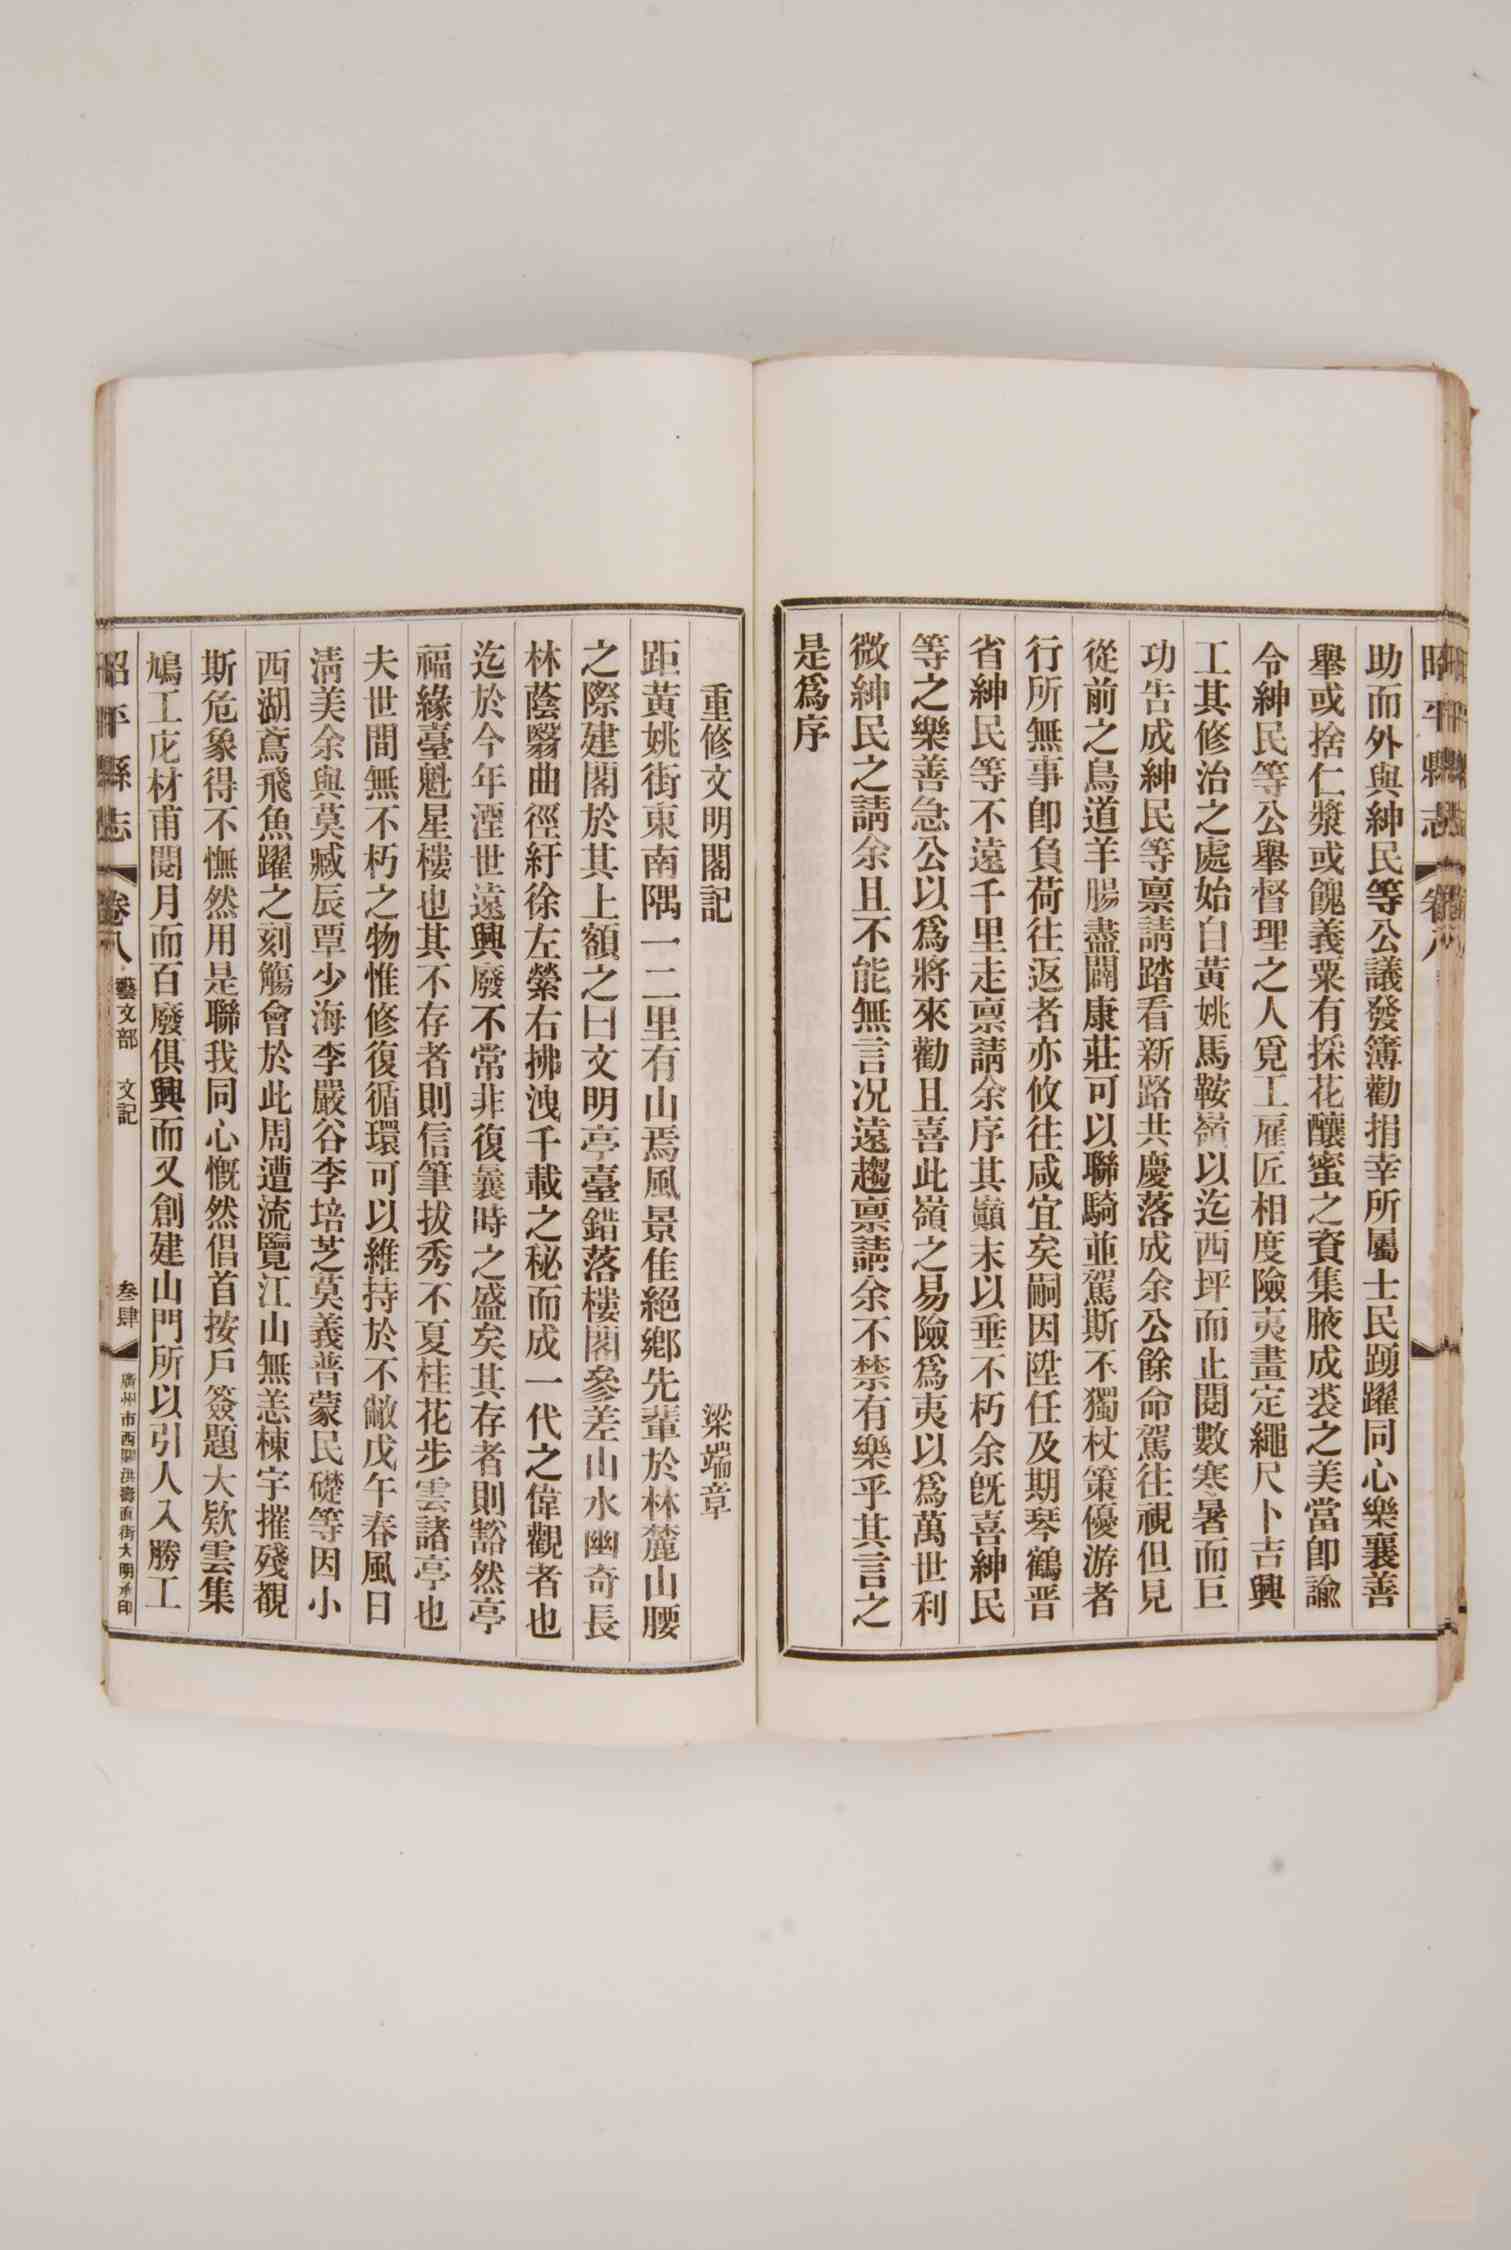 昭平縣志 卷八
助而外與紳民等公議發簿勸捐幸所屬士民踴躍同心樂襄善
舉或捨仁漿或餽義粟有採花釀蜜之資集腋成裘之美當卽諭
令紳民等公舉督理之人覓工雇匠相度險夷畫定繩尺卜吉興
工其修治之處始自黃姚馬鞍嶺以迄西坪而止閱數寒暑而巨
功告成紳民等禀請踏看新路共慶落成余公餘命駕往視但見
從前之鳥道羊腸盡闢康莊可以聯騎並駕斯不獨杖策優游者
行所無事卽負荷往返者亦攸往咸宜矣嗣因陞任及期琴鶴晋
省紳民等不遠千里走禀請余序其巔末以垂不朽余旣喜紳民
等之樂善急公以爲將來勸且喜此嶺之易險爲夷以爲萬世利
微紳民之請余且不能無言况遠趨禀請余不禁有樂乎其言之
是爲序
重修文明閣記 梁端章
距黃姚街東南隅一二里有山焉風景佳絕鄉先輩於林麓山腰
之際建閣於其上額之曰文明亭臺錯落樓閣參差山水幽奇長
林蔭翳曲徑紆徐左縈右拂洩千載之秘而成一代之偉觀者也
迄於今年湮世遠興廢不常非復曩時之盛矣其存者則豁然亭
福緣臺魁星樓也其不存者則信筆拔秀不夏桂花步雲諸亭也
夫世間無不朽之物惟修復循環可以維持於不敝戊午春風日
淸美余與莫臧辰覃少海李嚴谷李培芝莫義普蒙民礎等因小
西湖鳶飛魚躍之刻觴會於此周遭流覽江山無恙棟宇摧殘覩
斯危象得不憮然用是聯我同心慨然倡首按戶簽題大欵雲集
鳩工庀材甫閱月而百廢俱興而又創建山門所以引人入勝工
昭平縣志 卷八 藝文部 文記 叁肆 廣州市西關洪壽直街大明承印